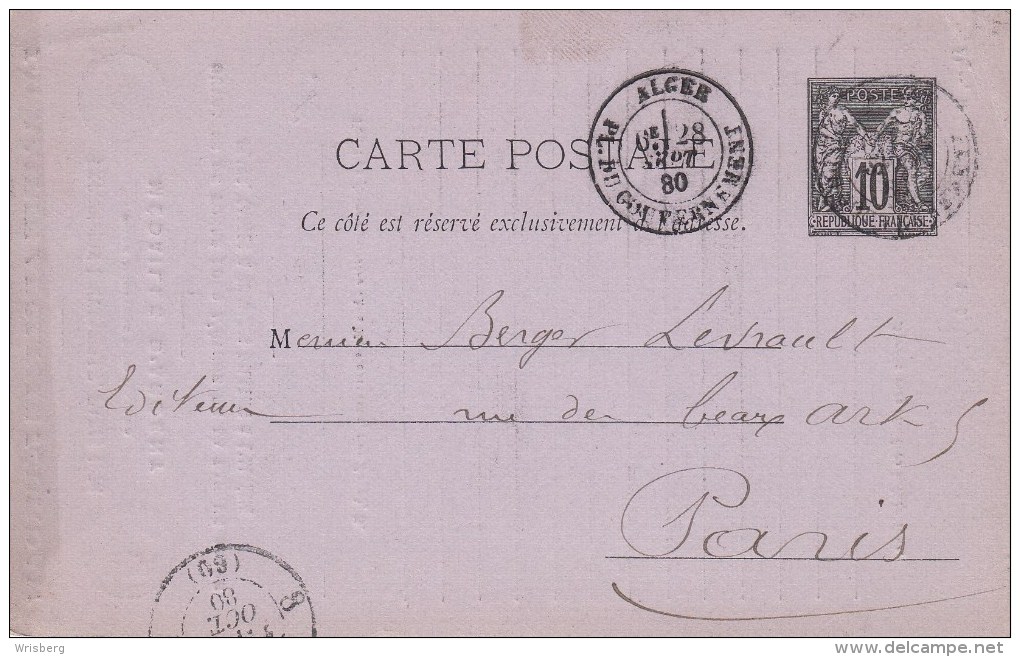 ALGER
PL. DU GOUVERNEMENT
6E 28
SEPT
80
POSTE
10
REPUBLIQUE FRANÇAISE
CARTE POSTALE
Ce côté est réservé exclusivement à l'adresse.
Messieurs Berger Levrault
Editeurs rue des beaux arts 5
Paris
(60)
80
OCT.
Wrisberg
delcampe.net